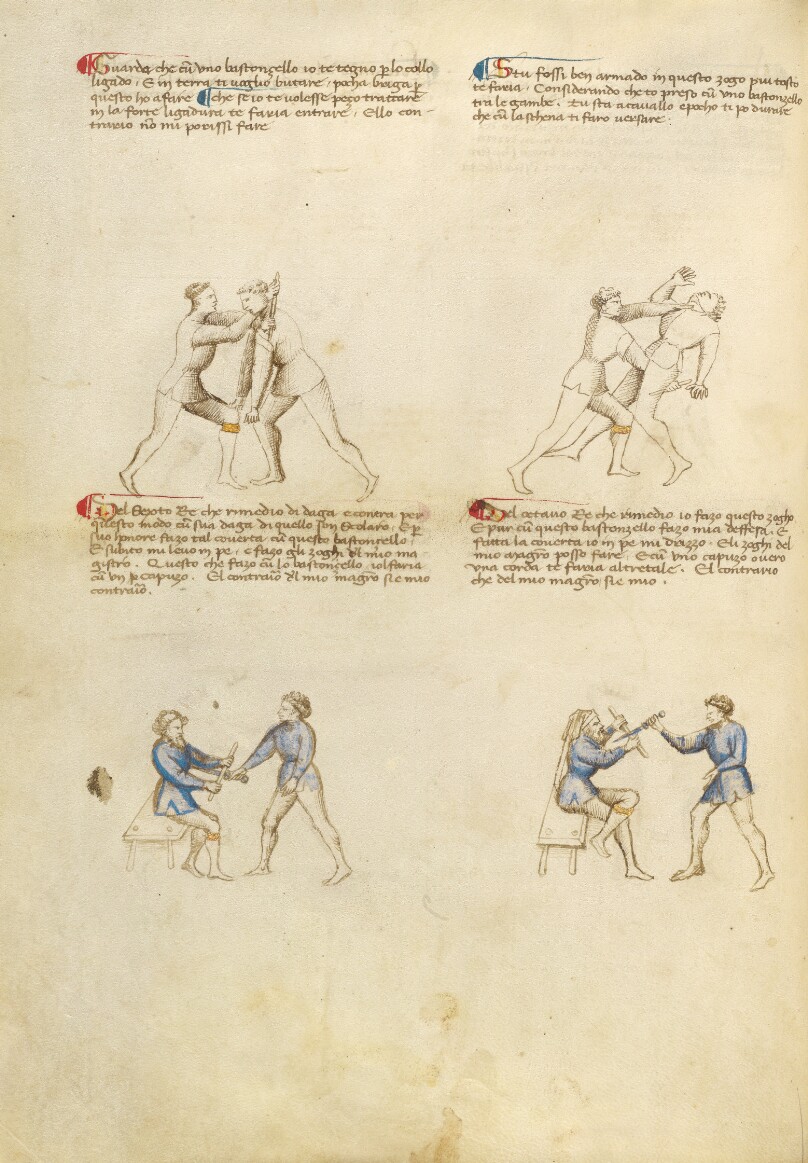 Guarda che cū uno bastonçello io te tegno p lo collo
ligado. E in terra ti voglio butare, pocha briga p
questo ho a fare. Che se io te volesse peço trattare
in la forte ligadura te faria entrare. E lo con-
trario nō mi porissi fare
Stu fossi ben armado in questo zogo piu tosto
te faria. Considerando che to preso cū uno bastonzello
tra le gambe. Tu sta a cavallo e pocho ti po durare
che cū la schena ti faro versare.
Del Seșto Re che rimedio di daga e contra per
questo modo cū sua daga di quello son Scolaro, E p
suo honore fazo tal coverta cū questo bastoncello.
E subito mi levo in pe, e fazo gli zoghi dl mio ma-
gistro. Questo che fazo cū lo bastoncello, io l faria
cū un capuzo. El contrario dl mio magistro si e mio
contrario.
Del octavo Re che rimedio io fazo questo zogho
E pur cū questo bastonzello fazo mia deffesa. E
fatta la coverta io in pe mi drizzo. E li zoghi del
mio magistro posso fare. E cū uno capuzo overo
una corda te faria altretale. El contrario
che del mio magistro si e mio.